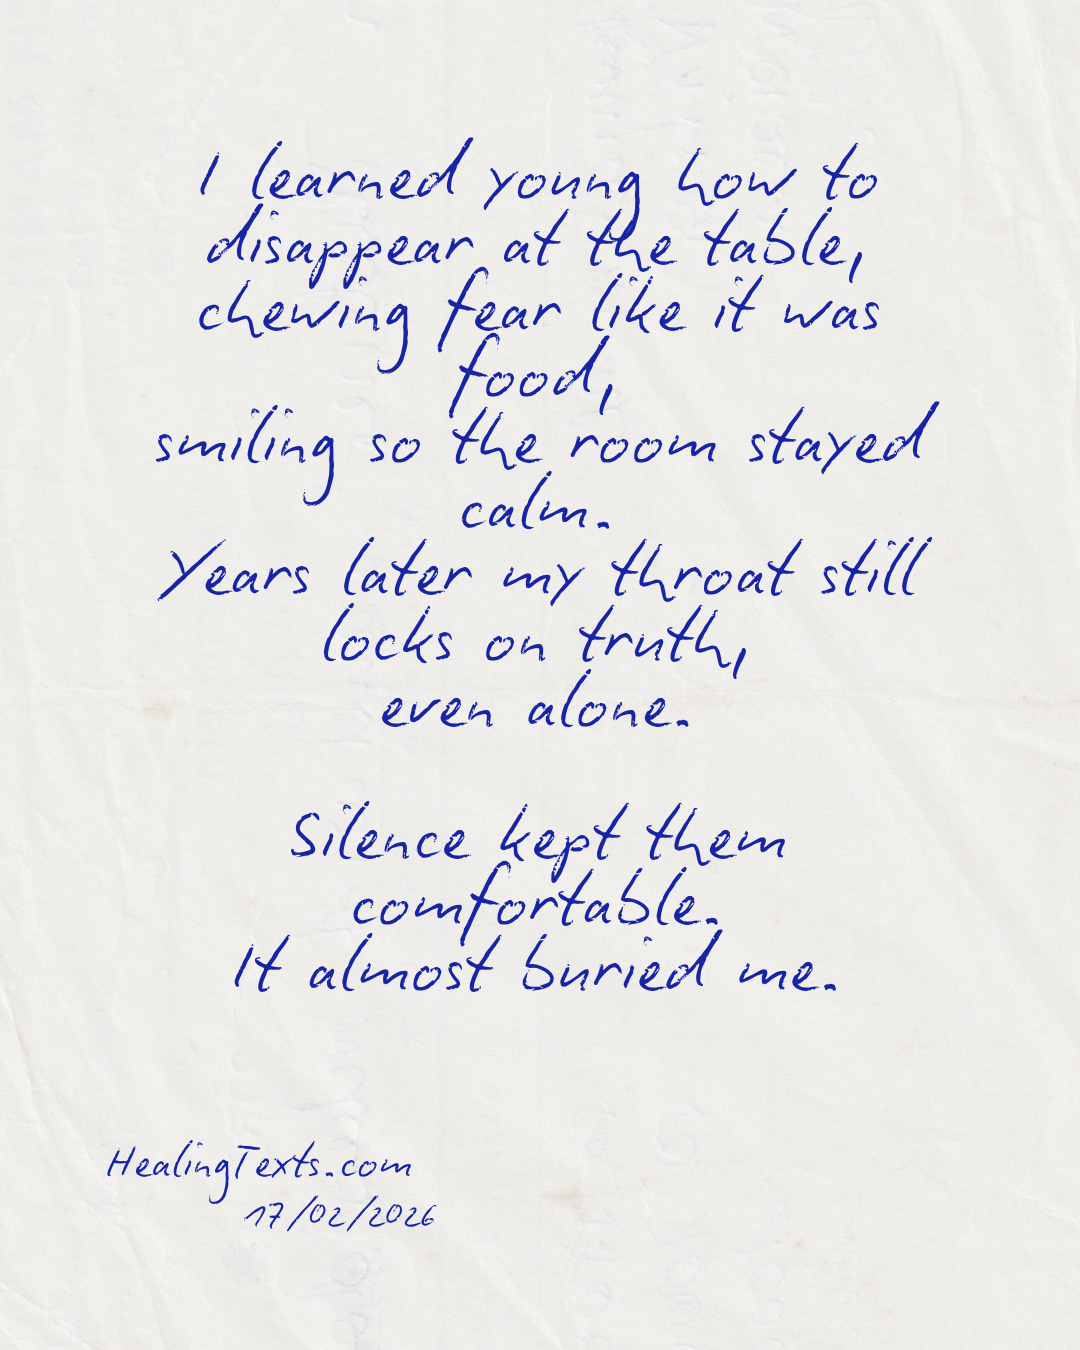 I learned young how to
disappear at the table,
chewing fear like it was
food,
smiling so the room stayed
calm.
Years later my throat still
locks on truth,
even alone.

Silence kept them
comfortable.
It almost buried me.

HealingTexts.com
17/02/2026